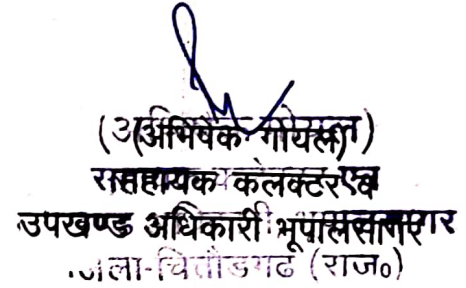 (अभिषेक गोयल)
सहायक कलक्टर एवं
उपखण्ड अधिकारी भूपालसागर
जिला-चित्तौडगढ (राज०)